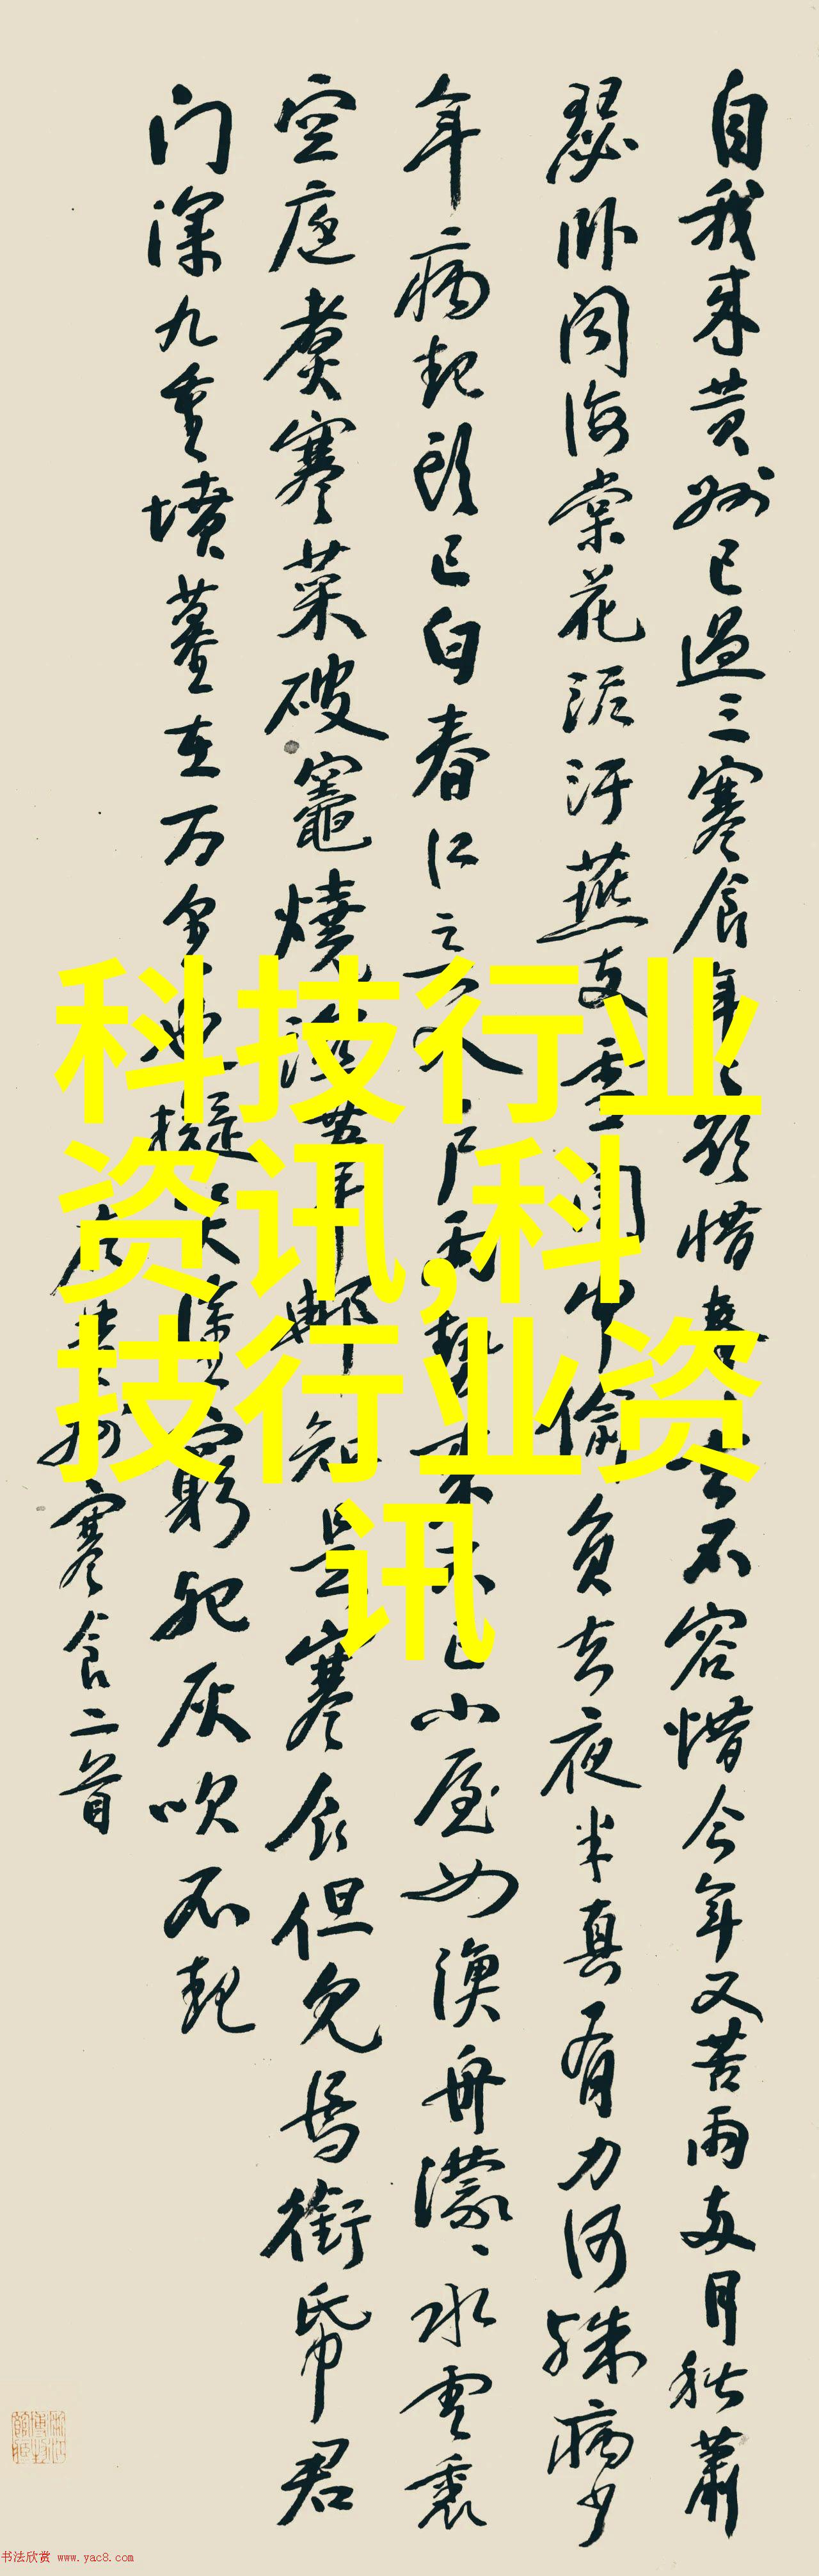 自我来黄州已過三寒食年〻欲惜春春去不容惜今年又苦雨兩月秋蕭
瑟卧闻海棠花泥汙燕支雪闇中偷負去夜半真有力何殊病少
年病起頭已白春江欲入户雨勢来不已小屋如漁舟濛〻水雲裏
空庖煮寒菜破竈燒濕葦那知是寒食但見烏銜帋君
门深九重墳墓在万里也擬哭塗窮死灰吹不起
右黄州寒食二首
科技行业
资讯,科
技行业资
讯
书法欣赏 www.yac8.com